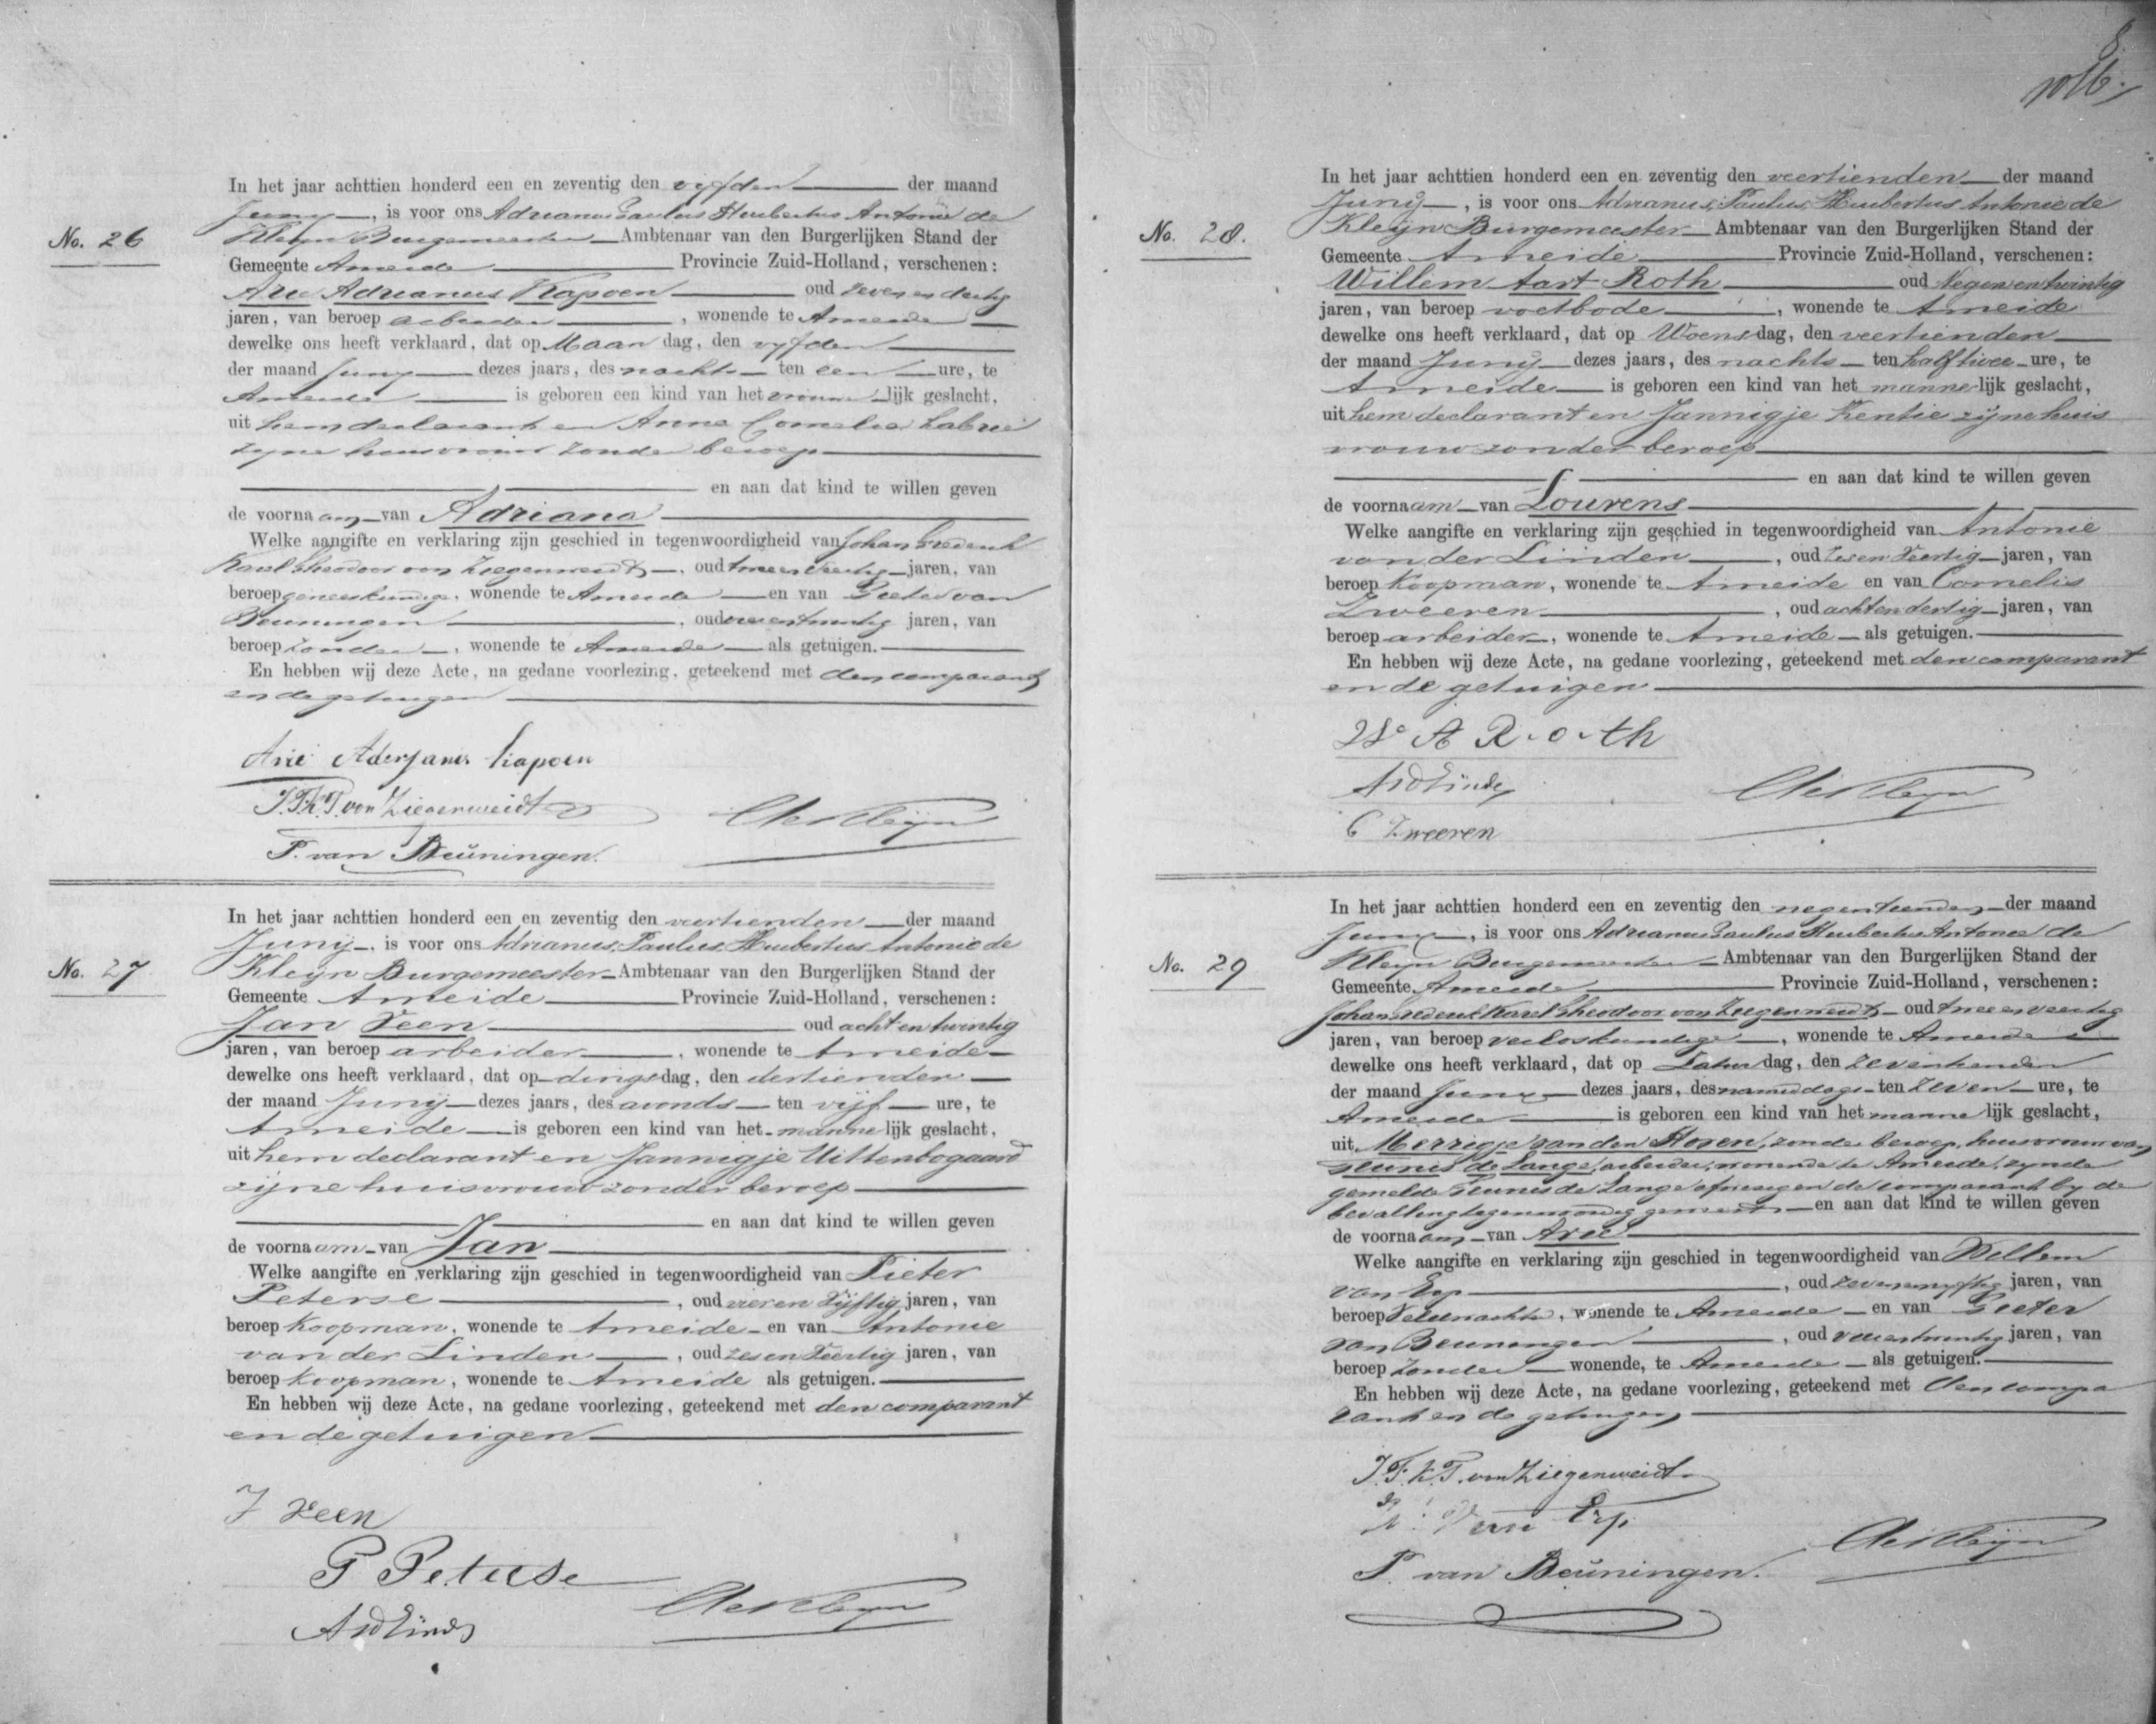 No. 26
In het jaar achttien honderd een en zeventig den vyfden der maand
Juny, is voor ons Adrianus Paulus Hubertus Antonie de
Kleyn Burgemeester Ambtenaar van den Burgerlijken Stand der
Gemeente Ameide Provincie Zuid-Holland, verschenen:
Arie Adrianus Kapoen oud zeven en dertig
jaren, van beroep arbeider, wonende te Ameide
dewelke ons heeft verklaard, dat op Maandag, den vyfden
der maand Juny dezes jaars, des nachts ten een ure, te
Ameide is geboren een kind van het vrouwelijk geslacht,
uit hem declarant en Anna Cornelia Labrie
zyne huisvrouw zonder beroep
en aan dat kind te willen geven
de voornaam van Adriana
Welke aangifte en verklaring zijn geschied in tegenwoordigheid van Johan Frederik
Karel Theodoor von Ziegenweidt, oud twee en veertig jaren, van
beroep geneeskundige, wonende te Ameide en van Pieter van
Beuningen, oud jaren, van
beroep zonder, wonende te Ameide als getuigen.
En hebben wij deze Acte, na gedane voorlezing, geteekend met den comparant
en de getuigen
Arie Aderjanus Kapoen
J.F.K.T. von Ziegenweidt
P. van Beüningen.
de Kleyn
No. 27
In het jaar achttien honderd een en zeventig den veertienden der maand
Junij, is voor ons Adrianus Paulus Hubertus Antonie de
Kleijn Burgemeester Ambtenaar van den Burgerlijken Stand der
Gemeente Ameide Provincie Zuid-Holland, verschenen:
Jan Veen oud acht en twintig
jaren, van beroep arbeider, wonende te Ameide
dewelke ons heeft verklaard, dat op dingsdag, den dertienden
der maand Junij dezes jaars, des avonds ten vijf ure, te
Ameide is geboren een kind van het mannelijk geslacht,
uit hem declarant en Jannigje Uittenbogaard
zijne huisvrouw zonder beroep
en aan dat kind te willen geven
de voornaam van Jan
Welke aangifte en verklaring zijn geschied in tegenwoordigheid van Pieter
Peterse, oud vier en Vijftig jaren, van
beroep Koopman, wonende te Ameide en van Antonie
van der Linden, oud zes en Veertig jaren, van
beroep koopman, wonende te Ameide als getuigen.
En hebben wij deze Acte, na gedane voorlezing, geteekend met den comparant
en de getuigen
J Veen
P Peterse
de Kleyn
No. 28.
In het jaar achttien honderd een en zeventig den veertienden der maand
Junij, is voor ons Adrianus, Paulus, Hubertus Antonie de
Kleijn Burgemeester Ambtenaar van den Burgerlijken Stand der
Gemeente Ameide Provincie Zuid-Holland, verschenen:
Willem Aart Roth oud Negen en twintig
jaren, van beroep voetbode, wonende te Ameide
dewelke ons heeft verklaard, dat op Woensdag, den veertienden
der maand Junij dezes jaars, des nachts ten half twee ure, te
Ameide is geboren een kind van het mannelijk geslacht,
uit hem declarant en Jannigje Kentie zijne huis
vrouw zonder beroep
en aan dat kind te willen geven
de voornaam van Lourens
Welke aangifte en verklaring zijn geschied in tegenwoordigheid van Antonie
van der Linden, oud Zes en Veertig jaren, van
beroep Koopman, wonende te Ameide en van Cornelis
Zweeren, oud acht en dertig jaren, van
beroep arbeider, wonende te Ameide als getuigen.
En hebben wij deze Acte, na gedane voorlezing, geteekend met den comparant
en de getuigen
W A Roth
C Zweeren
de Kleyn
No. 29
In het jaar achttien honderd een en zeventig den negentienden der maand
Juny, is voor ons Adrianus Paulus Hubertus Antonie de
Kleyn Burgemeester Ambtenaar van den Burgerlijken Stand der
Gemeente Ameide Provincie Zuid-Holland, verschenen:
Johan Frederik Karel Theodoor von Ziegenweidt oud twee en veertig
jaren, van beroep verloskundige, wonende te Ameide
dewelke ons heeft verklaard, dat op Zaturdag, den zeventienden
der maand Juny dezes jaars, des namiddags ten zeven ure, te
Ameide is geboren een kind van het mannelijk geslacht,
uit Merrigje van den Hoven, zonder beroep, huisvrouw van
Teunis de Lange, arbeider, wonende te Ameide, zynde
gemelde Teunis de Lange afwezig en de comparant by de
bevalling tegenwoordig geweest en aan dat kind te willen geven
de voornaam van Arie
Welke aangifte en verklaring zijn geschied in tegenwoordigheid van Willem
van Erp, oud zeven en vyftig jaren, van
beroep Veldwachter, wonende te Ameide en van Pieter
van Beuningen, oud jaren, van
beroep zonder wonende, te Ameide als getuigen.
En hebben wij deze Acte, na gedane voorlezing, geteekend met den compa
rant en de getuigen
J.F.K.T. von Ziegenweidt
W. Van Erp
P. van Beüningen.
de Kleyn